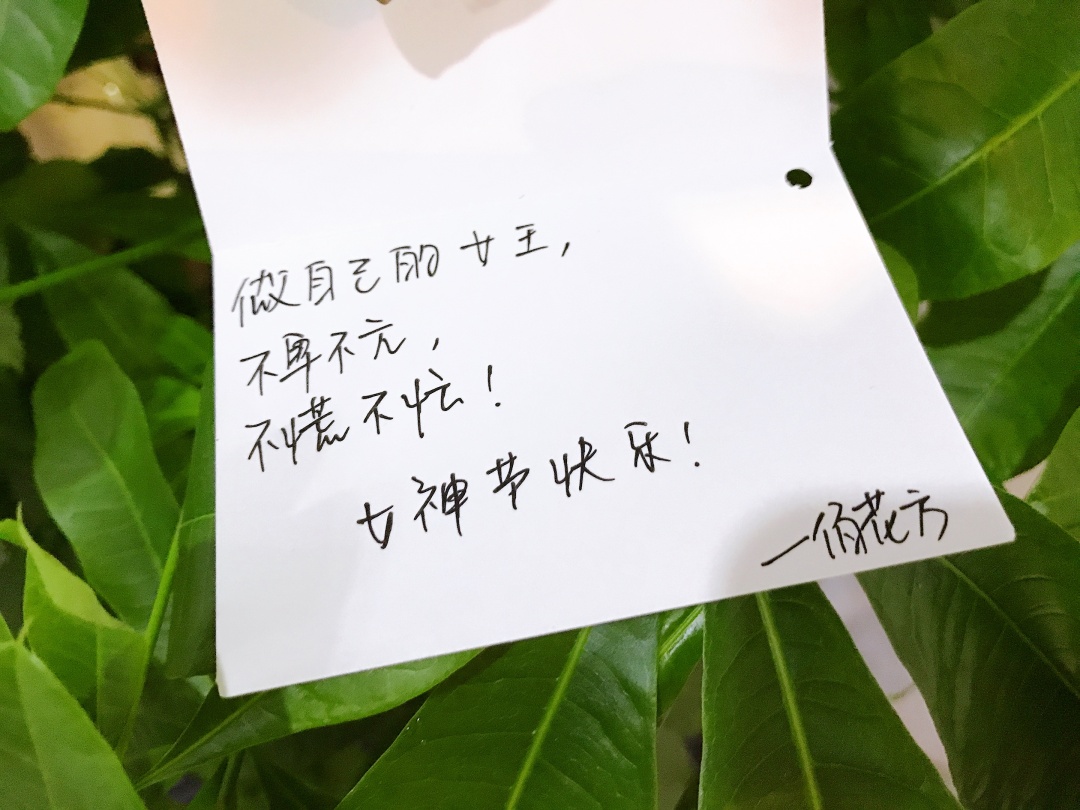 做自己的女王,
不卑不亢,
不慌不忙!
女神节快乐!
一俏花方